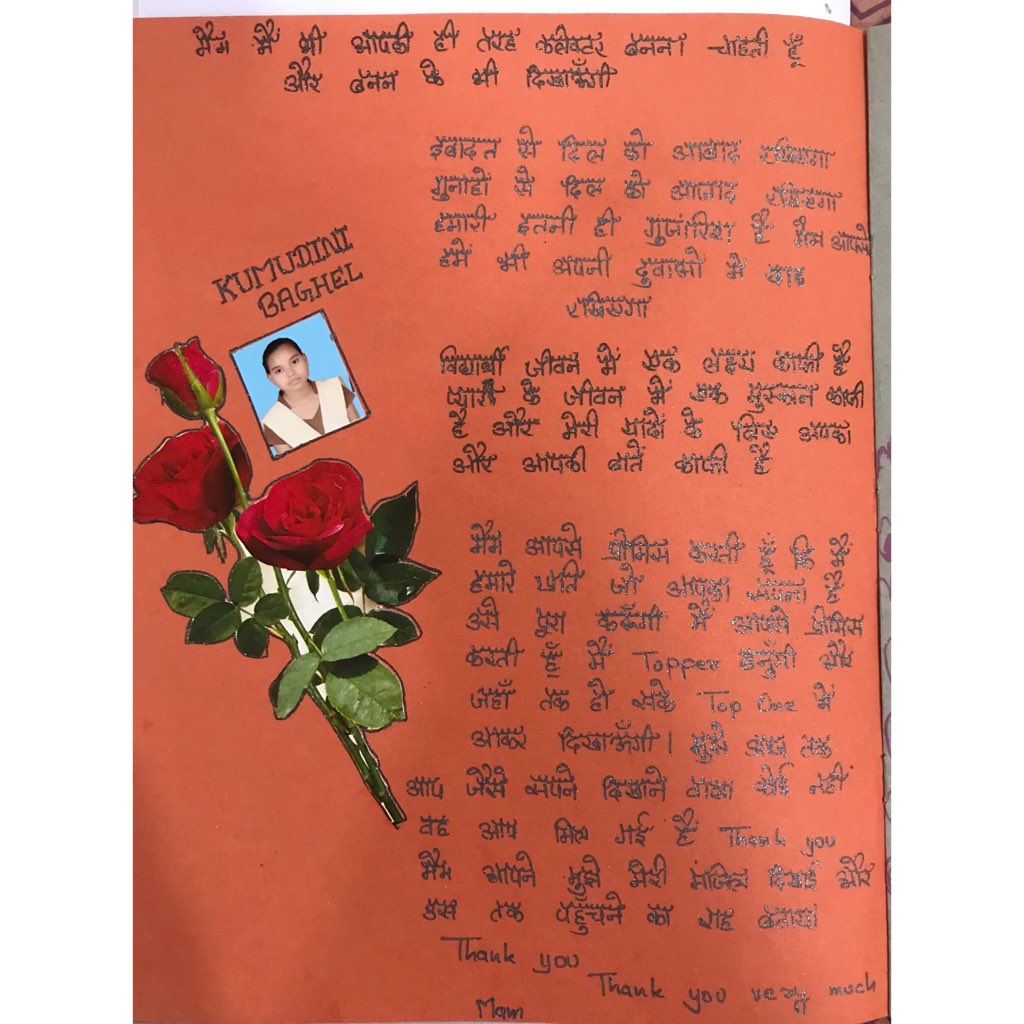 मैम मैं भी आपकी ही तरह कलेक्टर बनना चाहती हूँ
और बनन के भी दिखाऊँगी
इबादत से दिल को आबाद रखिएगा
गुनाहो से दिल को आजाद रखिएगा
हमारी इतनी ही गुजारिश है मैम आपसे
हमें भी अपनी दुवाओ मे याद
रखिएगा
KUMUDINI
BAGHEL
विद्यार्थी जीवन में एक लक्ष्य काफी है
के जीवन में एक मुस्कान काफी
है और मेरी के लिए आपका
और आपकी बातें काफी है
मैम आपसे प्रोमिस करती हूँ कि मैं
हमारे प्रति जो आपका सपना है
उसे पूरा करूँगी मैं आपसे प्रोमिस
करती हूँ मैं Topper बनुँगी और
जहाँ तक हो सके Top One में
आकर दिखाऊँगी। मुझे आज तक
आप जैसे सपने दिखाने वाला कोई नहीं
वह आप मिल गई हैं Thank you
मैम आपने मुझे मेरी मंजिल दिखाई और
उस तक पहुँचने का राह बताया
Thank you
Thank you very much
Mam